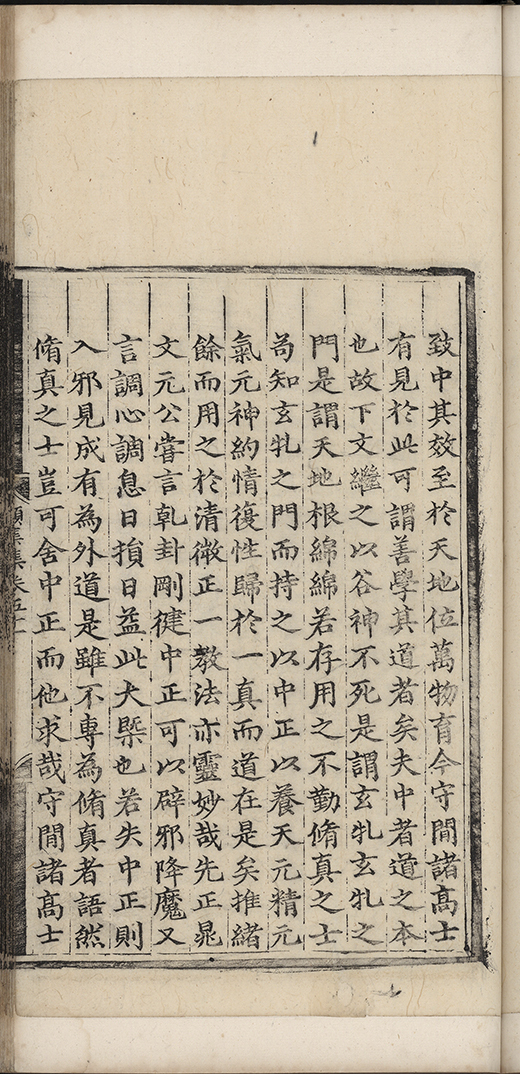 致中其效至於天地位萬物育今守閒諸高士
有見於此可謂善學其道者矣夫中者道之本
也故下文繼之以谷神不死是謂玄牝玄牝之
門是謂天地根綿綿若存用之不勤脩真之士
茍知玄牝之門而持之以中正以養天元精元
氣元神約情復性歸於一真而道在是矣推緒
餘而用之於清微正一教法亦靈妙哉先正晁
文元公嘗言乾卦剛健中正可以辟邪降魔又
言調心調息日損日益此大槩也若失中正則
入邪見成有為外道是雖不專為脩真者語然
脩真之士豈可舍中正而他求哉守閒諸高士
集卷五十